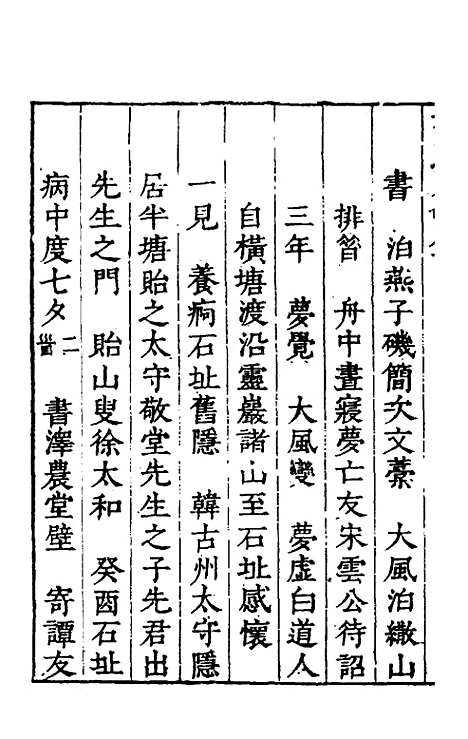 書　泊燕子磯簡次文藁　大風泊繖山
排筲　舟中晝寢夢亡友宋雲公待詔
三年　夢覺　大風變　夢虛白道人
自橫塘渡沿靈巖諸山至石址感懷
一見　養痾石址舊隱　韓古州太守隱
居半塘貽之太守敬堂先生之子先君出
先生之門　貽山叟徐太和　癸酉石址
病中度七夕二首　書澤農堂壁　寄譚友